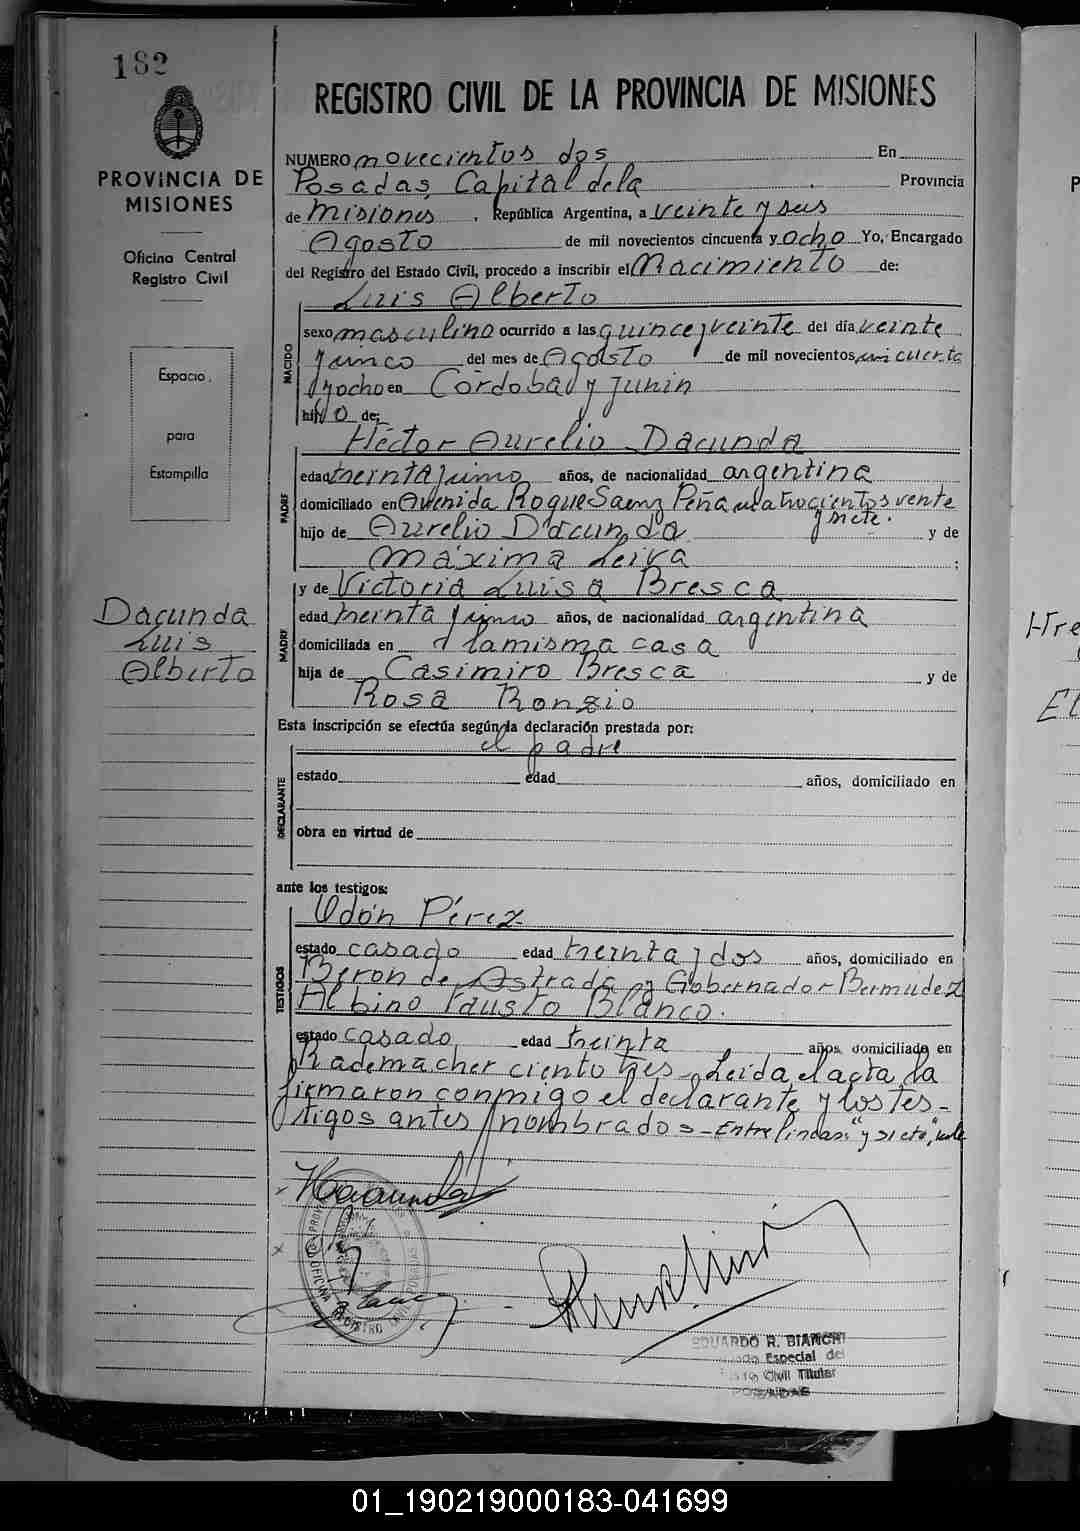 182
PROVINCIA DE
MISIONES
Oficina Central
Registro Civil
Espacio
para
Estampilla
Dacunda
Luis
Alberto
REGISTRO CIVIL DE LA PROVINCIA DE MISIONES
NUMERO novecientos dos En
Posadas, Capital de la Provincia
de Misiones, República Argentina, a veinte y seis
Agosto de mil novecientos cincuenta y ocho Yo, Encargado
del Registro del Estado Civil, procedo a inscribir el Nacimiento de:
NACIDO
Luis Alberto
sexo masculino ocurrido a las quince y veinte del día veinte
y cinco del mes de Agosto de mil novecientos cincuenta
y ocho en Córdoba y Junin
hijo de:
PADRE
Héctor Aurelio Dacunda
edad treinta y cinco años, de nacionalidad argentina
domiciliado en Avenida Roque Saenz Peña cuatrocientos veinte
y siete.
hijo de Aurelio Dacunda y de
Máxima Leiva ;
MADRE
y de Victoria Luisa Bresca
edad treinta y cinco años, de nacionalidad argentina
domiciliada en la misma casa
hija de Casimiro Bresca y de
Rosa Ronzio
Esta inscripción se efectúa según la declaración prestada por:
DECLARANTE
el padre
estado edad años, domiciliado en
obra en virtud de
ante los testigos:
TESTIGOS
Odón Pérez
estado casado edad treinta y dos años, domiciliado en
Beron de Astrada y Gobernador Bermudez
Albino Fausto Blanco.
estado casado edad treinta años, domiciliado en
Rademacher ciento tres - Leida el acta la
firmaron conmigo el declarante y los tes-
tigos antes nombrados - Entre lineas: "y siete", vale
HDacunda
OFICINA REGISTRO CIVIL POSADAS
EDUARDO R. BIANCHI
Especial del
Civil Titular
POSADAS
01_190219000183-041699